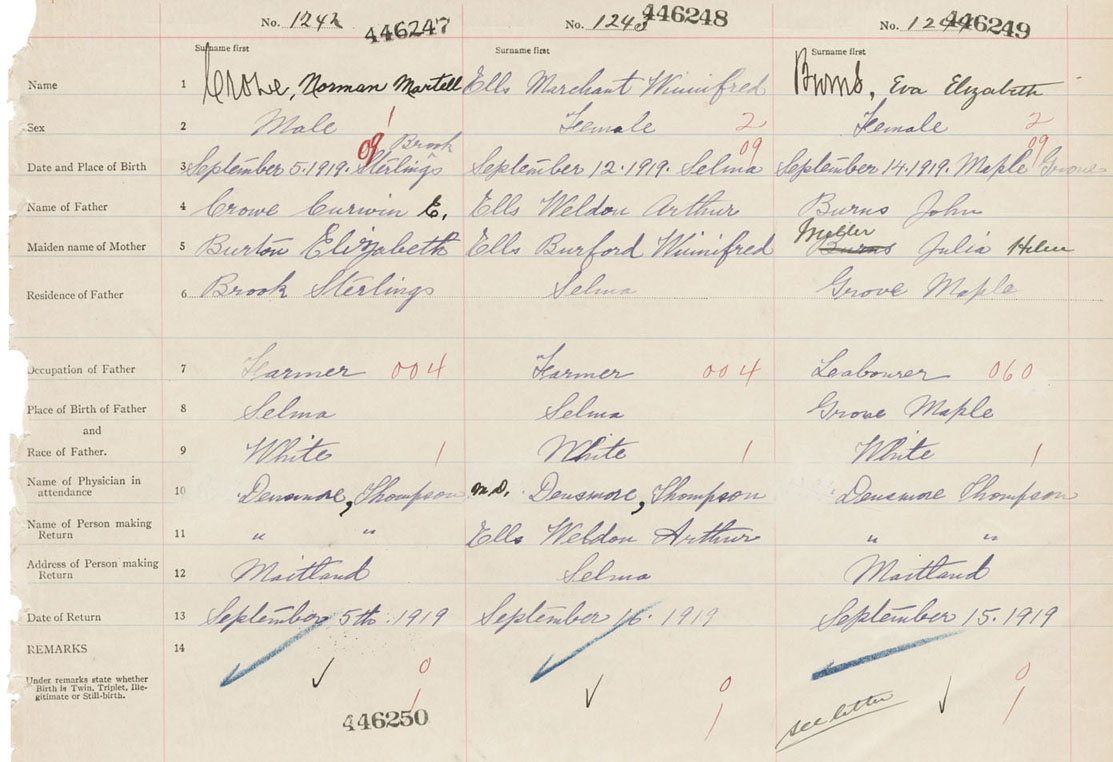 No. 1242 446247 No. 1243 446248 No. 1244 446249
Surname first Surname first Surname first
Name 1 Crowe, Norman Martell Ells Marchant Winnifred Burns, Eva Elizabeth
Sex 2 Male 1 Female 2 Female 2
09 Brook 09 09
Date and Place of Birth 3 September 5.1919. Sterlings September 12.1919. Selma September 14.1919. Maple Grove
Name of Father 4 Crowe Curwin E. Ells Weldon Arthur Burns John
Maiden name of Mother 5 Burton Elizabeth Ells Burford Winnifred Burns Miller Julia Helen
Residence of Father 6 Brook Sterlings Selma Grove Maple
Occupation of Father 7 Farmer 004 Farmer 004 Leabourer 060
Place of Birth of Father 8 Selma Selma Grove Maple
and
Race of Father. 9 White 1 White 1 White 1
Name of Physician in
attendance 10 Densmore, Thompson M.D. Densmore, Thompson Densmore Thompson
Name of Person making
Return 11 " " Ells Weldon Arthur " "
Address of Person making
Return 12 Maitland Selma Maitland
Date of Return 13 September 5th. 1919 September 16. 1919 September 15. 1919
REMARKS 14
Under remarks state whether
Birth is Twin, Triplet, Ille-
gitimate or Still-birth.
0 0 0
1 1 1
446250 see letter